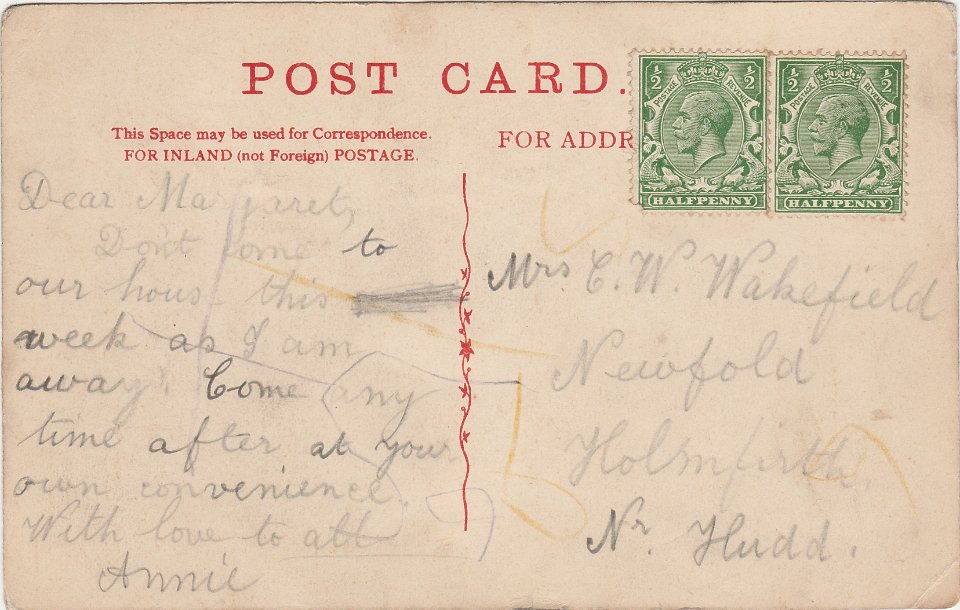 POST CARD.
This Space may be used for Correspondence.
FOR INLAND (not Foreign) POSTAGE.
FOR ADDR
½ ½
POSTAGE REVENUE
HALFPENNY
½ ½
POSTAGE REVENUE
HALFPENNY
Dear Margaret,
Don't come to
our hous this
week as I am
away. Come any
time after at your
own convenience.
With love to all
Annie
Mrs C. W. Wakefield
Newfold
Holmfirth.
Nr. Hudd.